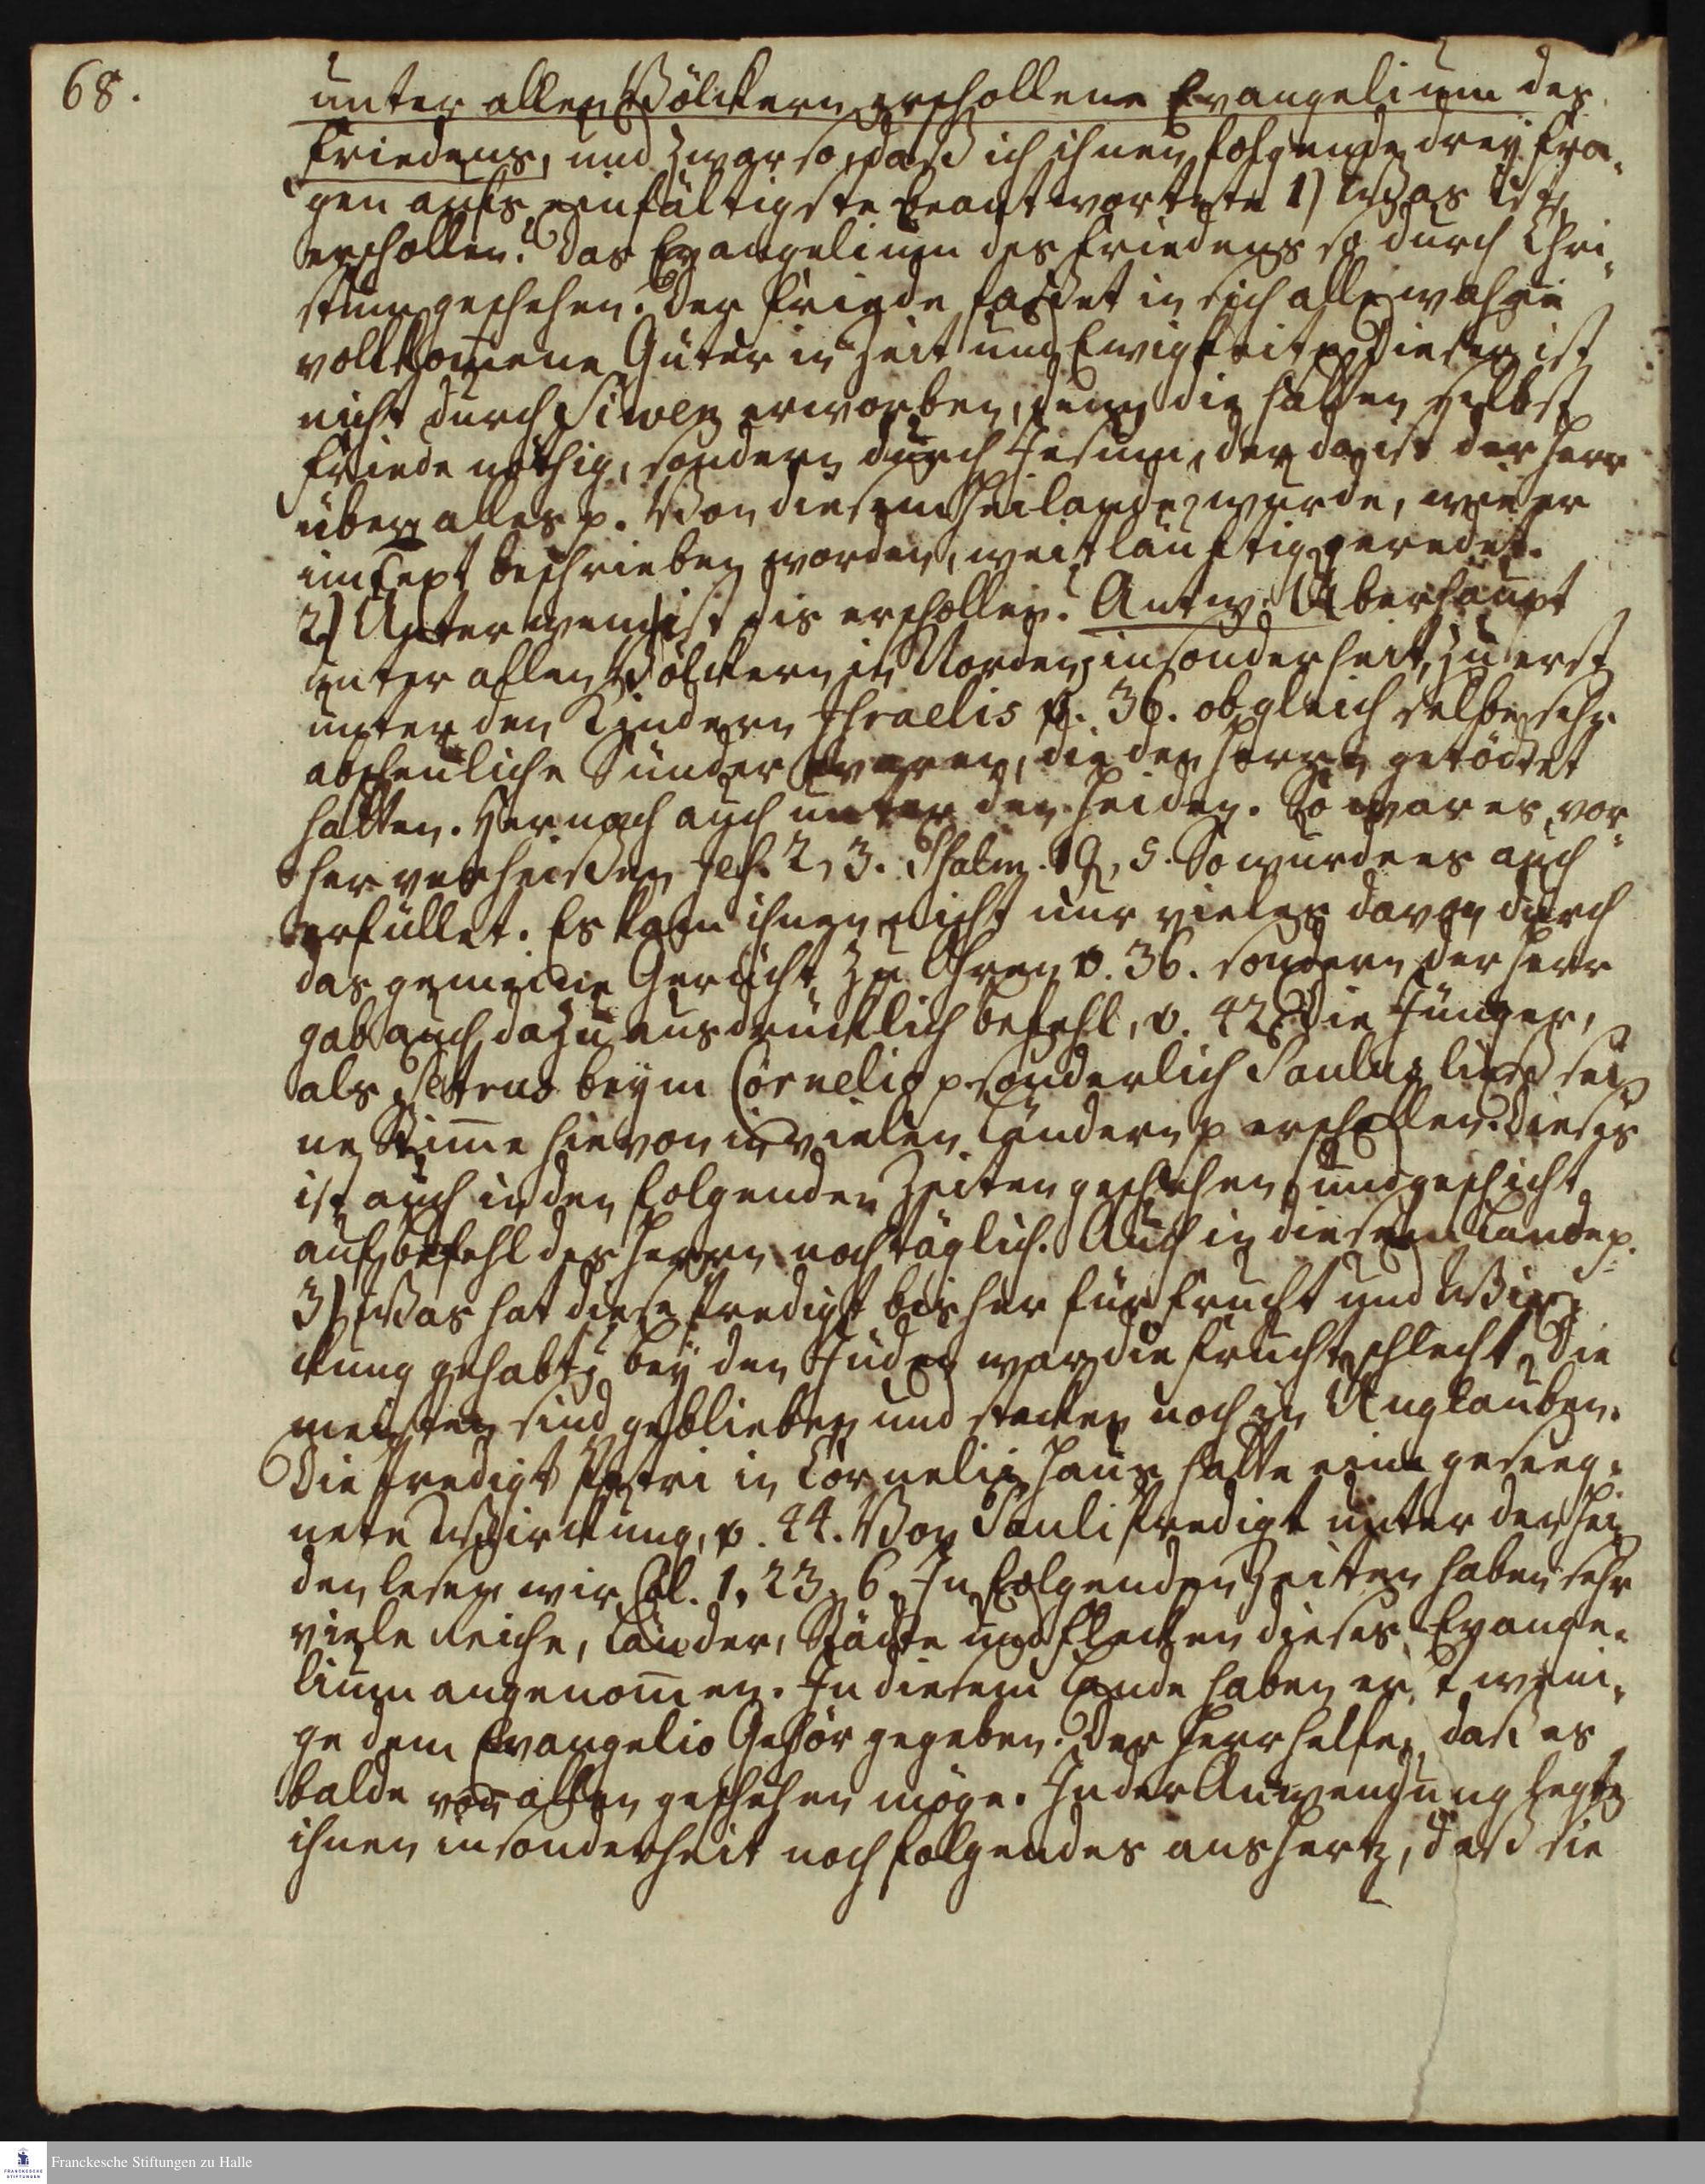 68.
unter allen Völckern erschollene Evangelium des
Friedens, und zwar so, daß ich ihnen folgende drey Fra-
gen aufs einfältigste beantwortete 1) Was ist
erschollen? Das Evangelium des Friedens so durch Chri-
stum geschehen. Der Friede fasset in sich alle wahre
vollkom̅ene Güter in Zeit und Ewigkeit p Dieser ist
nicht durch Siwen erworben, denn die hatten selbst
Friede nöthig, sondern durch Jesum, der da ist der Herr
über alles p. Von diesem Heilande wurde, wie er
im Text beschrieben worden, weitläuftig geredet.
2) Unter wem ist dis erschollen? Antw. Überhaupt
unter allen Völckern in Norden; insonderheit, zu erst
unter den Kindern Israelis v. 36. obgleich selbe sehr
abscheuliche Sünder waren, die den Herrn getödtet
hatten. Hernach auch unter den Heiden. So war es vor-
her verheissen Jes. 2, 3. Psalm. 19, 5. So wurde es auch
erfüllet. Es kam ihnen nicht nur vieles davon durch
das gemeine Gerücht zu Ohren v. 36. sondern der Herr
gab auch dazu ausdrücklich befehl, v. 42. Die Jünger,
als Petrus beym Cornelio p sonderlich Paulus ließ sei-
ne Stim̅e hievon in vielen Ländern p erschallen. Dieses
ist auch in den folgenden Zeiten geschehen, und geschicht
auf befehl des Herrn noch täglich. Auch in diesem Lande p.
3) Was hat diese Predigt bisher für Frucht und Wir-
ckung gehabt? bey den Juden war die Frucht schlecht. Die
meisten sind geblieben und stecken noch in Unglauben.
Die Predigt Petri in Cornelii Haus hatte eine geseeg-
nete Wirckung, v. 44. Von Pauli Predigt unter den Hei-
den lesen wir Col. 1, 23. 6. In folgenden Zeiten haben sehr
viele Reiche, Länder, Städte und Flecken dieses Evange-
lium angenom̅en. In diesem Lande haben erst weni-
ge dem Evangelio Gehör gegeben. Der Herr helfe, daß es
balde von allen geschehen möge. In der Anwendung legte
ihnen insonderheit noch folgendes ans Hertz, daß sie
FRANCKESCHE STIFTUNGEN
Franckesche Stiftungen zu Halle